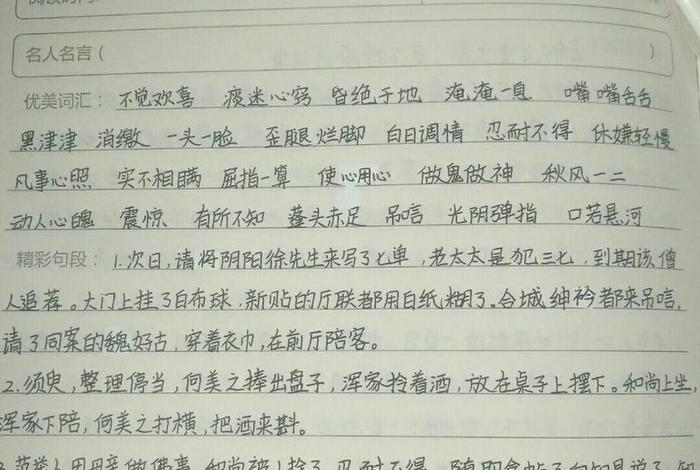 名人名言（ ）
优美词汇： 不觉欢喜 痰迷心窍 昏绝于地 淹淹一息 嘴嘴舌舌
黑津津 消缴 一头一脸 歪腿烂脚 白日调情 忍耐不得 休嫌轻慢
凡事心照 实不相瞒 屈指一算 使心用心 做鬼做神 秋风一二
动人心魄 震惊 有所不知 蓬头赤足 吊唁 光阴弹指 口若悬河
精彩句段：1.次日，请将阴阳徐先生来写了七单，老太太是犯三七，到期该僧
人追荐。大门上挂了白布球，新贴的厅联都用白纸糊了。合城绅衿都来吊唁，
请了同案的魏好古，穿着衣巾，在前厅陪客。
2.须臾，整理停当，何美之捧出盘子，浑家拎着酒，放在桌子上摆下。和尚上坐，
浑家下陪，何美之打横，把酒来斟。